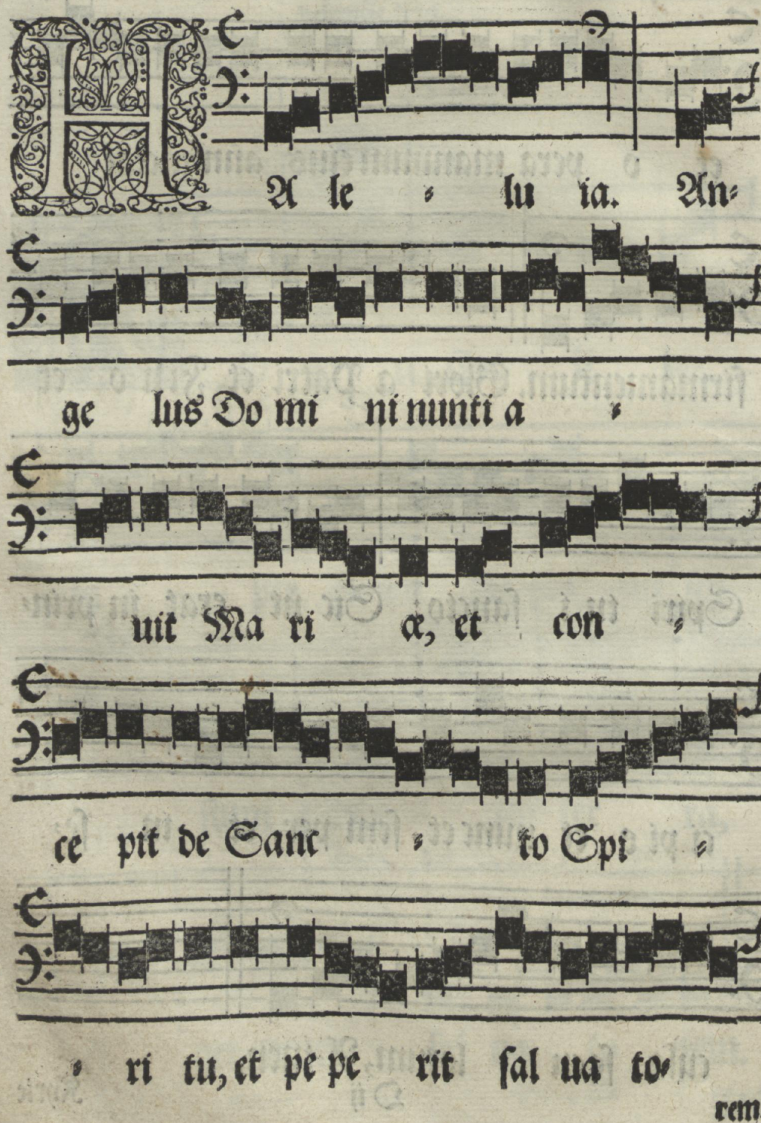 HA le - lu ia. An-
ge lus Do mi ni nunti a -
uit Ma ri æ, et con -
ce pit de Sanc - to Spi -
- ri tu, et pe pe rit sal ua to-
rem